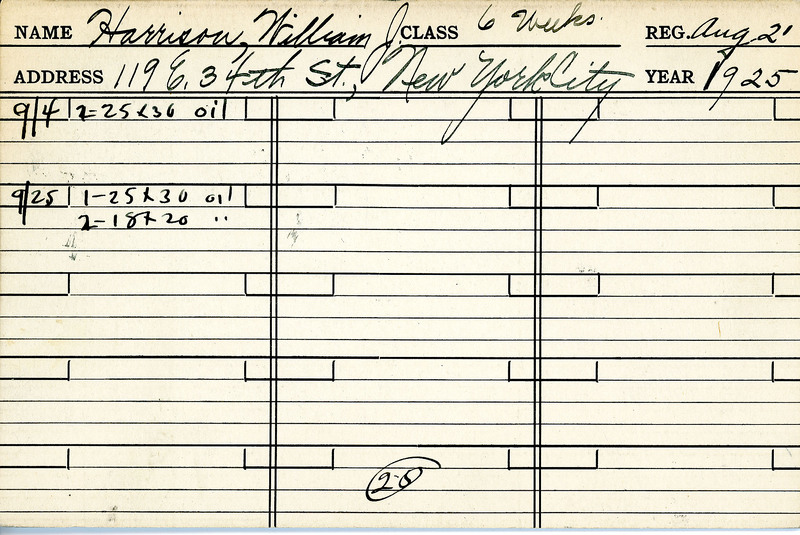 NAME Harrison, William J. CLASS 6 Weeks. REG. Aug 21
ADDRESS 119 E. 34th St., New York City YEAR 1925
9/4 2-25x30 oil
9/25 1-25x30 oil
2-18x20 "